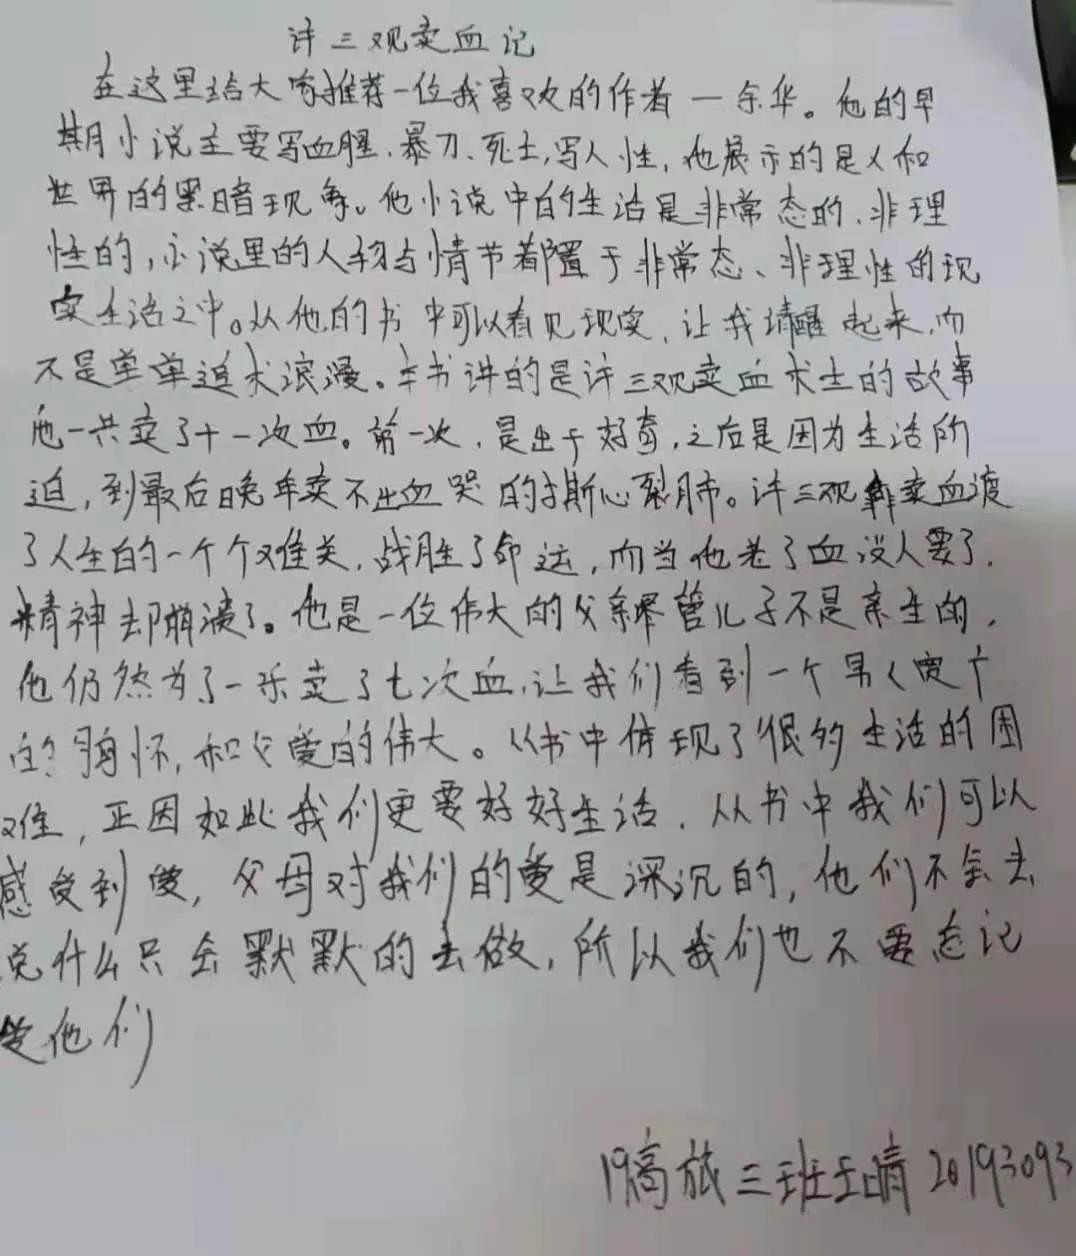 许三观卖血记
在这里给大家推荐一位我喜欢的作者一余华。他的早
期小说主要写血腥、暴力、死亡,写人性,他展示的是人和
世界的黑暗现象。他小说中的生活是非常态的、非理
性的,小说里的人物与情节都置于非常态、非理性的现
实生活之中。从他的书中可以看见现实,让我清醒起来,而
不是单单追求浪漫。本书讲的是许三观卖血求生的故事
他一共卖了十一次血。第一次,是出于好奇,之后是因为生活所
迫,到最后晚年卖不出血哭的撕心裂肺。许三观靠卖血渡
了人生的一个个难关,战胜了命运,而当他老了血没人要了,
精神却崩溃了。他是一位伟大的父亲尽管儿子不是亲生的,
他仍然为了一乐卖了七次血,让我们看到一个男人
的胸怀,和父爱的伟大。从书中体现了很多生活的困
难,正因如此我们更要好好生活,从书中我们可以
感受到爱,父母对我们的爱是深沉的,他们不会去
说什么只会默默的去做,所以我们也不要忘记
爱他们
19高旅三班王晴 20193093